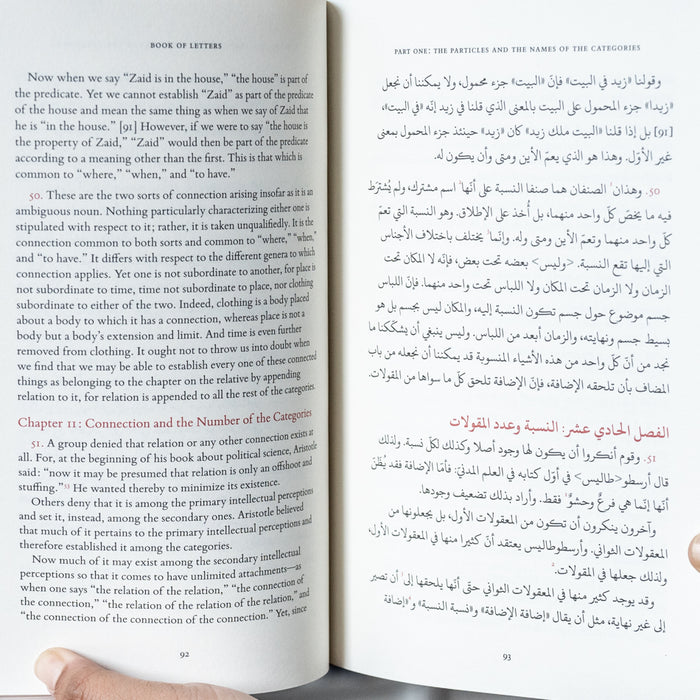 BOOK OF LETTERS
Now when we say “Zaid is in the house,” “the house” is part of
the predicate. Yet we cannot establish “Zaid” as part of the predicate
of the house and mean the same thing as when we say of Zaid that
he is “in the house.” [91] However, if we were to say “the house is
the property of Zaid,” “Zaid” would then be part of the predicate
according to a meaning other than the first. This is that which is
common to “where,” “when,” and “to have.”
50. These are the two sorts of connection arising insofar as it is an
ambiguous noun. Nothing particularly characterizing either one is
stipulated with respect to it; rather, it is taken unqualifiedly. It is the
connection common to both sorts and common to “where,” “when,”
and “to have.” It differs with respect to the different genera to which
connection applies. Yet one is not subordinate to another, for place is
not subordinate to time, time not subordinate to place, nor clothing
subordinate to either of the two. Indeed, clothing is a body placed
about a body to which it has a connection, whereas place is not a
body but a body’s extension and limit. And time is even further
removed from clothing. It ought not to throw us into doubt when
we find that we may be able to establish every one of these connected
things as belonging to the chapter on the relative by appending
relation to it, for relation is appended to all the rest of the categories.
Chapter 11: Connection and the Number of the Categories
51. A group denied that relation or any other connection exists at
all. For, at the beginning of his book about political science, Aristotle
said: “now it may be presumed that relation is only an offshoot and
stuffing.”³³ He wanted thereby to minimize its existence.
Others deny that it is among the primary intellectual perceptions
and set it, instead, among the secondary ones. Aristotle believed
that much of it pertains to the primary intellectual perceptions and
therefore established it among the categories.
Now much of it may exist among the secondary intellectual
perceptions so that it comes to have unlimited attachments—as
when one says “the relation of the relation,” “the connection of
the connection,” “the relation of the relation of the relation,” and
“the connection of the connection of the connection.” Yet, since
92
PART ONE: THE PARTICLES AND THE NAMES OF THE CATEGORIES
وقولنا «زيد في البيت» فإنّ «البيت» جزء محمول، ولا يمكننا أن نجعل
«زيدا» جزء المحمول على البيت بالمعنى الذي قلنا في زيد إنّه «في البيت»،
[91] بل إذا قلنا «البيت ملك زيد» كان «زيد» حينئذ جزء المحمول بمعنى
غير الأوّل. وهذا هو الذي يعمّ الأين ومتى وأن يكون له.
50. وهذان الصنفان هما صنفا النسبة على أنّها اسم مشترك، ولم يُشترَط
فيه ما يخصّ كلّ واحد منهما، بل أُخذ على الإطلاق. وهو النسبة التي تعمّ
كلّ واحد منهما وتعمّ الأين ومتى وله. وإنّما يختلف باختلاف الأجناس
التي إليها تقع النسبة. <وليس> بعضه تحت بعض، فإنّه لا المكان تحت
الزمان ولا الزمان تحت المكان ولا اللباس تحت واحد منهما. فإنّ اللباس
جسم موضوع حول جسم تكون النسبة إليه، والمكان ليس بجسم بل هو
بسيط جسم ونهايته، والزمان أبعد من اللباس. وليس ينبغي أن يشكّكنا ما
نجد من أنّ كلّ واحد من هذه الأشياء المنسوبة قد يمكننا أن نجعله من باب
المضاف بأن تلحقه الإضافة، فإنّ الإضافة تلحق كلّ ما سواها من المقولات.
الفصل الحادي عشر: النسبة وعدد المقولات
51. وقوم أنكروا أن يكون لها وجود أصلا وكذلك لكلّ نسبة. ولذلك
قال أرسطو<طاليس> في أوّل كتابه في العلم المدنيّ: فأمّا الإضافة فقد يُظَنّ
أنّها إنّما هي فرعٌ وحشوٌ فقط. وأراد بذلك تضعيف وجودها.
وآخرون ينكرون أن تكون من المعقولات الأول، بل يجعلونها من
المعقولات الثواني. وأرسطوطاليس يعتقد أنّ كثيرا منها في المعقولات الأول،
ولذلك جعلها في المقولات.
وقد يوجد كثير منها في المعقولات الثواني حتّى أنّها يلحقها إلى أن تصير
إلى غير نهاية، مثل أن يقال «إضافة الإضافة» و«نسبة النسبة» و«إضافة
93